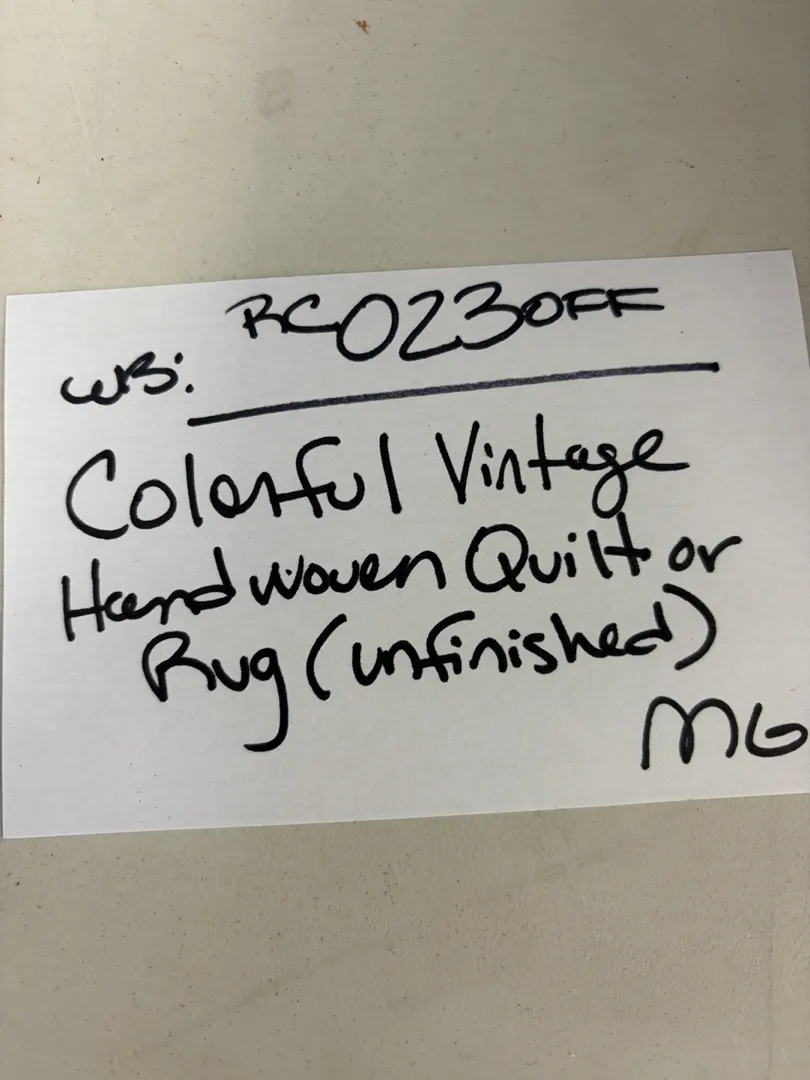 RC023OFF
WB:
Colorful Vintage
Handwoven Quilt or
Rug (unfinished)
MG